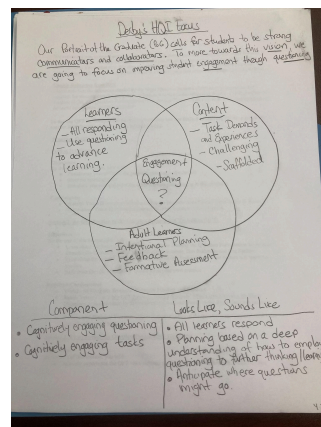 Derby's HQI Focus
Our Portrait of the Graduate (POG) calls for students to be strong
communicators and collaborators. To move towards this vision, we
are going to focus on improving student engagement though questioning
Learners
- All responding
- Use questioning
to advance
learning.
Content
- Task Demands
and Experiences
- Challenging
- Scaffolded
Engagement
Questioning
?
Adult Learners
- Intentional Planning
- Feedback
- Formative Assessment
Component
• Cognitively engaging questioning
• Cognitively engaging tasks
Looks Like, Sounds Like
• All learners respond
• Planning based on a deep
understanding of how to employ
questioning to further thinking/learn
• Anticipate where questions
might go.